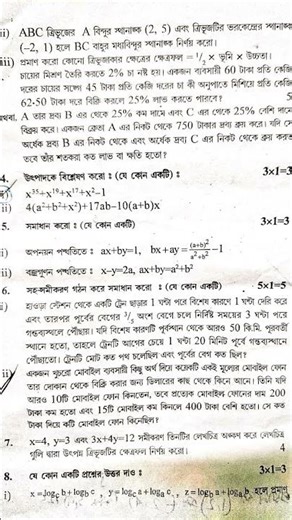 ii) ABC ত্রিভুজের A বিন্দুর স্থানাঙ্ক (2, 5) এবং ত্রিভুজটির ভরকেন্দ্রের স্থানাঙ্ক
(–2, 1) হলে BC বাহুর মধ্যবিন্দুর স্থানাঙ্ক নির্ণয় করো।
iii) প্রমাণ করো কোনো ত্রিভুজাকার ক্ষেত্রের ক্ষেত্রফল = 1/2 × ভূমি × উচ্চতা।
চায়ের মিশ্রণ তৈরি করতে 2% চা নষ্ট হয়। একজন ব্যবসায়ী 60 টাকা প্রতি কেজি
দরের চায়ের সঙ্গে 45 টাকা প্রতি কেজি দরের চা কী অনুপাতে মিশিয়ে প্রতি কেজি
62-50 টাকা দরে বিক্রি করলে 25% লাভ করতে পারবে? 5
অথবা, A তার দ্রব্য B এর থেকে 25% কম দামে এবং C এর থেকে 25% বেশি দামে
বিক্রয় করে। একজন ক্রেতা A এর নিকট থেকে 750 টাকার দ্রব্য ক্রয় করে। যদি সে
অর্ধেক দ্রব্য B এর নিকট থেকে এবং অর্ধেক দ্রব্য C এর নিকট থেকে ক্রয় করত
তবে তাঁর শতকরা কত লাভ বা ক্ষতি হতো?
4. উৎপাদকে বিশ্লেষণ করো : (যে কোন একটি) 3×1=3
x³⁵+x¹⁹+x¹⁷+x²–1
ii) 4(a²+b²+x²)+17ab–10(a+b)x
5. সমাধান করো : (যে কোন একটি) 3×1=3
i) অপনয়ন পদ্ধতিতে : ax+by=1, bx+ay = (a+b)²/a²+b² –1
ii) বজ্রগুণন পদ্ধতিতে : x–y=2a, ax+by=a²+b²
6. সহ-সমীকরণ গঠন করে সমাধান করো : (যে কোন একটি) 5x1=5
i) হাওড়া স্টেশন থেকে একটি ট্রেন ছাড়ার 1 ঘন্টা পরে বিশেষ কারণে 1 ঘন্টা দেরি করে
এবং তারপর পূর্বের বেগের 3/5 অংশ বেগে চলে নির্দিষ্ট সময়ের 3 ঘন্টা পরে
গন্তব্যস্থলে পৌঁছায়। যদি বিশেষ কারণটি পূর্বস্থান থেকে আরও 50 কি.মি. পূরবর্তী
স্থানে হতো, তাহলে ট্রেনটি আগের চেয়ে 1 ঘন্টা 20 মিনিট পূর্বে গন্তব্যস্থানে
পৌঁছাতো। ট্রেনটি মোট কত পথ চলেছিল এবং পূর্বের বেগ কত ছিল?
ii) একজন খুচরো মোবাইল ব্যবসায়ী কিছু অর্থ দিয়ে কয়েকটি একই মূল্যের মোবাইল ফোন
তার দোকান থেকে বিক্রি করার জন্য ডিলারের কাছ থেকে কিনে আনে। তিনি যদি
আরও 10টি মোবাইল ফোন কিনতেন, তবে প্রত্যেক মোবাইল ফোনের দাম 200
টাকা কম হতো এবং 15টি মোবাইল কম কিনলে 400 টাকা বেশি হতো। সে কত
টাকা দিয়ে কটি মোবাইল ফোন কিনেছিল?
7. x=4, y=3 এবং 3x+4y=12 সমীকরণ তিনটির লেখচিত্র অঙ্কণ করে লেখচিত্র
গুলি দ্বারা উৎপন্ন ত্রিভুজটির ক্ষেত্রফল নির্ণয় করো। 4
8. যে কোন একটি প্রশ্নের উত্তর দাও : 3×1=3
i) x=log_c b+log b c , y=log_c a+log_a c, z=log_b a+log_a b হলে প্রমাণ